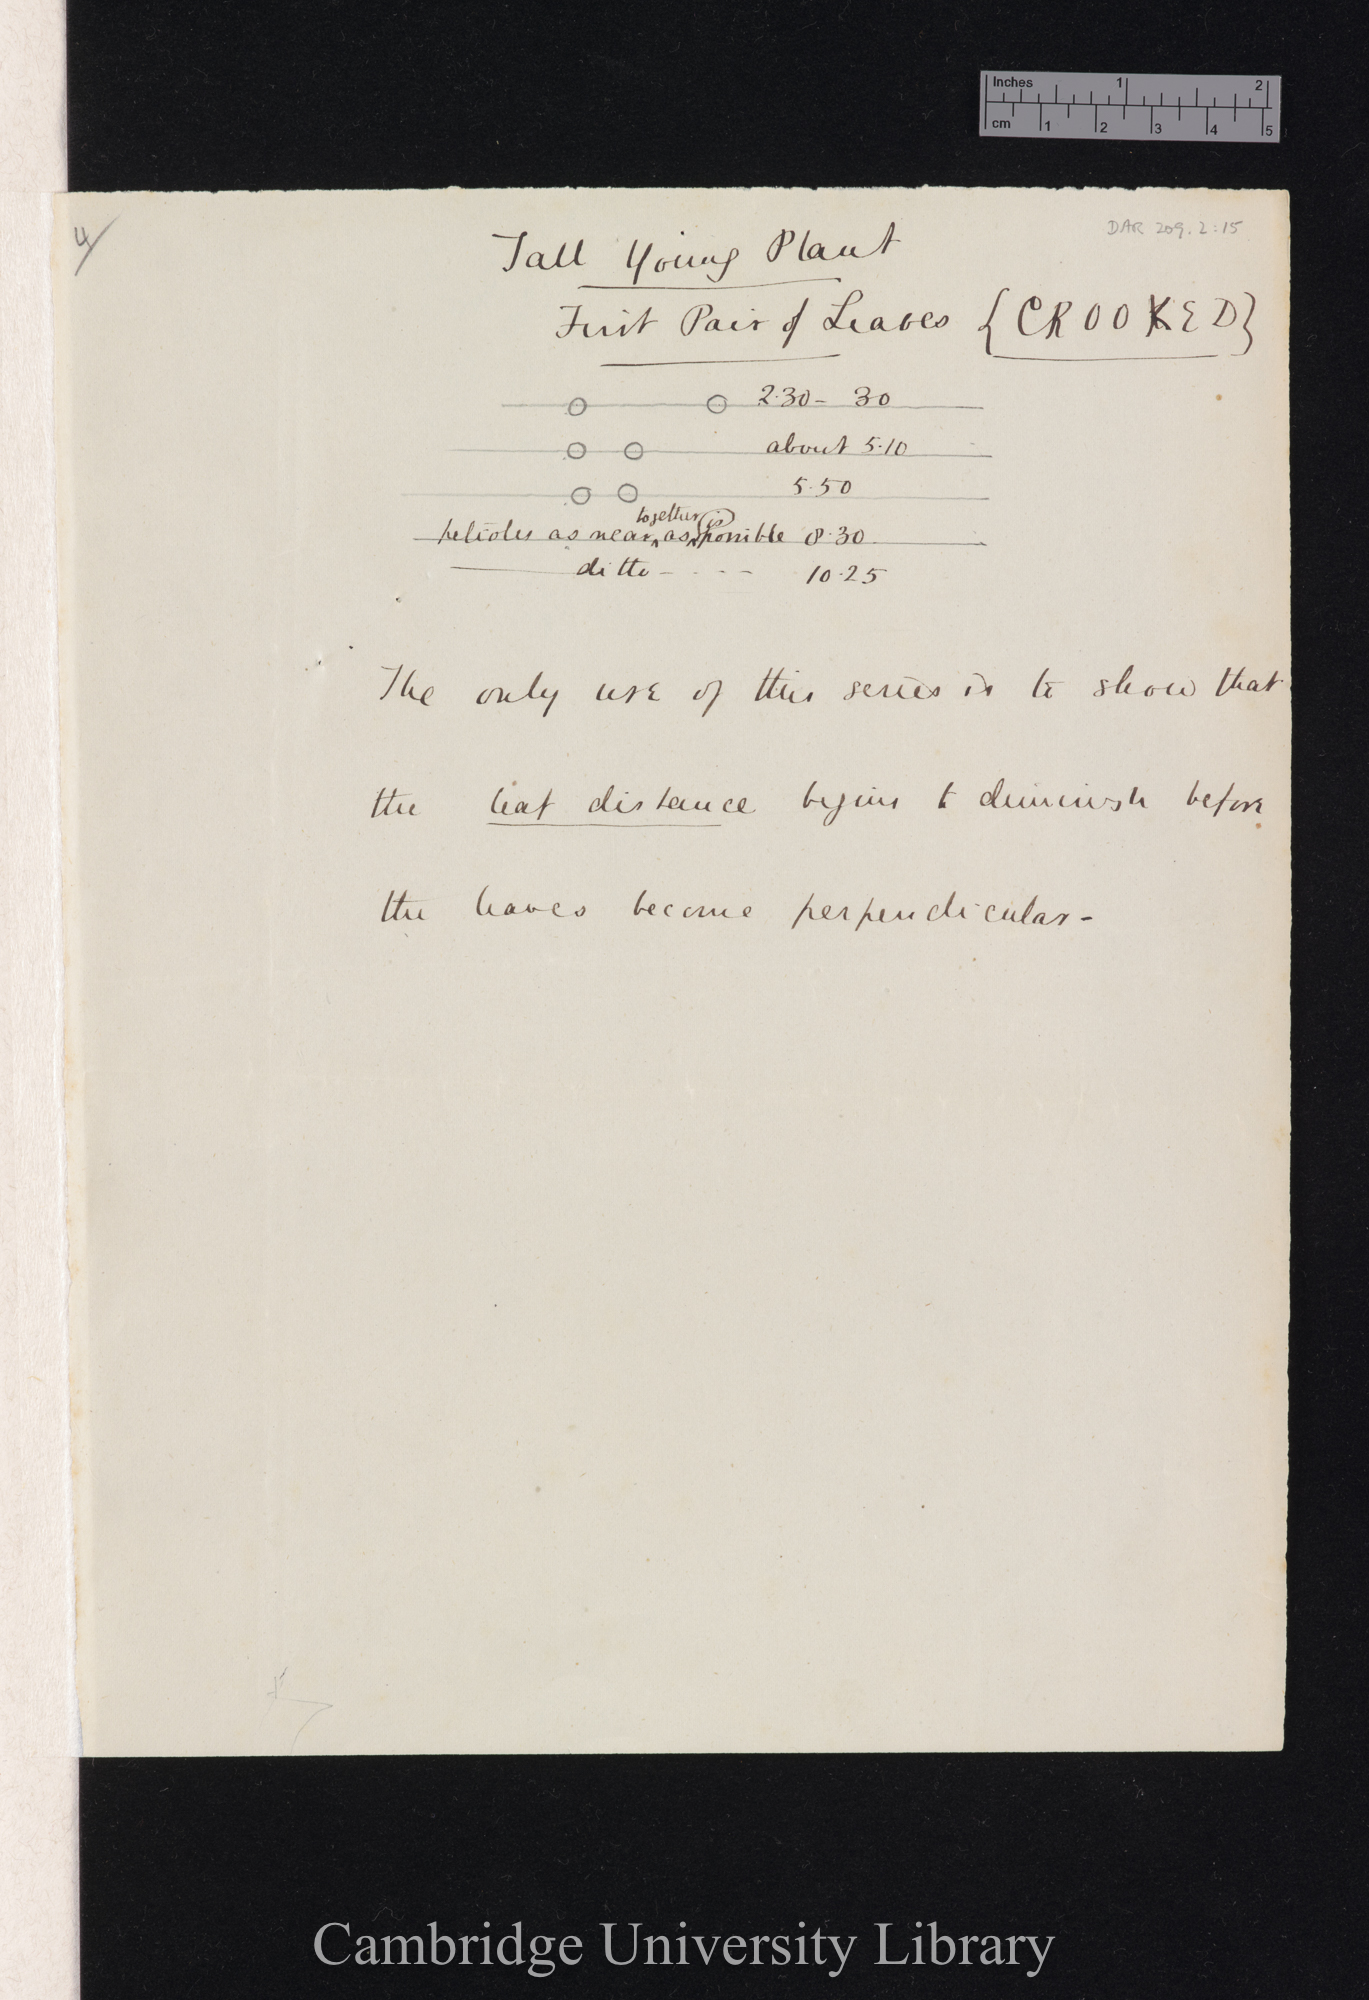 Inches 1 2
cm 1 2 3 4 5
4
DAR 209.2:15
Tall Young Plant
First Pair of Leaves {CROOKED}
2.30 - 30
about 5.10
5.50
together is
petioles as near as possible 8.30
ditto - - - - 10.25
The only use of this series is to show that
the leaf distance begins to diminish before
the leaves become perpendicular -
Cambridge University Library